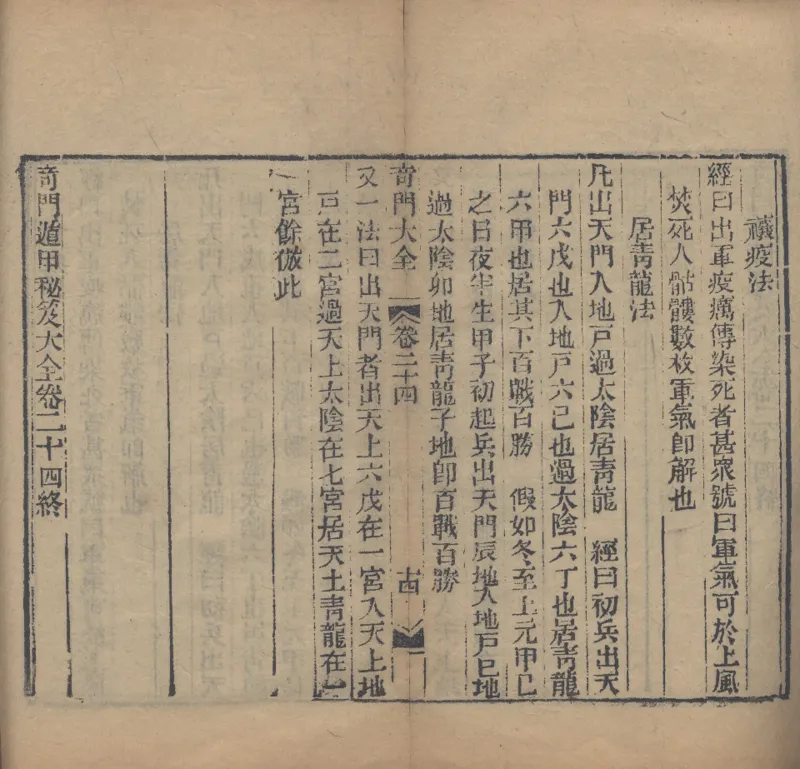 禳疫法
經曰出軍疫癘傳染死者甚眾號曰軍氣可於上風
焚死人骷髏數枚軍氣即解也
居靑龍法
凡出天門入地戸過太陰居靑龍 經曰初兵出天
門六戊也入地戸六己也過太陰六丁也居靑龍
六甲也居其下百戰百勝 假如冬至上元甲己
之日夜半生甲子初起兵出天門辰地入地戸巳地
過太陰卯地居靑龍子地即百戰百勝
奇門大全 卷二十四 十四
又一法曰出天門者出天上六戊在一宮入天上地
戸在二宮過天上太陰在七宮居天上靑龍在
一宮餘倣此
奇門遁甲秘笈大全卷二十四終